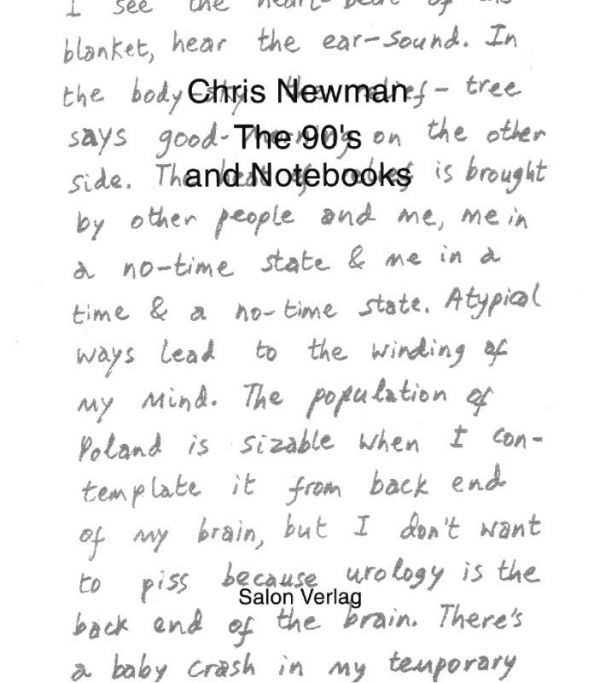 I see the heart-beat of
blanket, hear the ear-sound. In
the body Chris Newman - tree
says good- The 90's on the other
side. and Notebooks is brought
by other people and me, me in
a no-time state & me in a
time & a no-time state. Atypical
ways lead to the winding of
my mind. The population of
Poland is sizable when I con-
template it from back end
of my brain, but I don't want
to piss because urology is the
Salon Verlag
back end of the brain. There's
a baby crash in my temporary